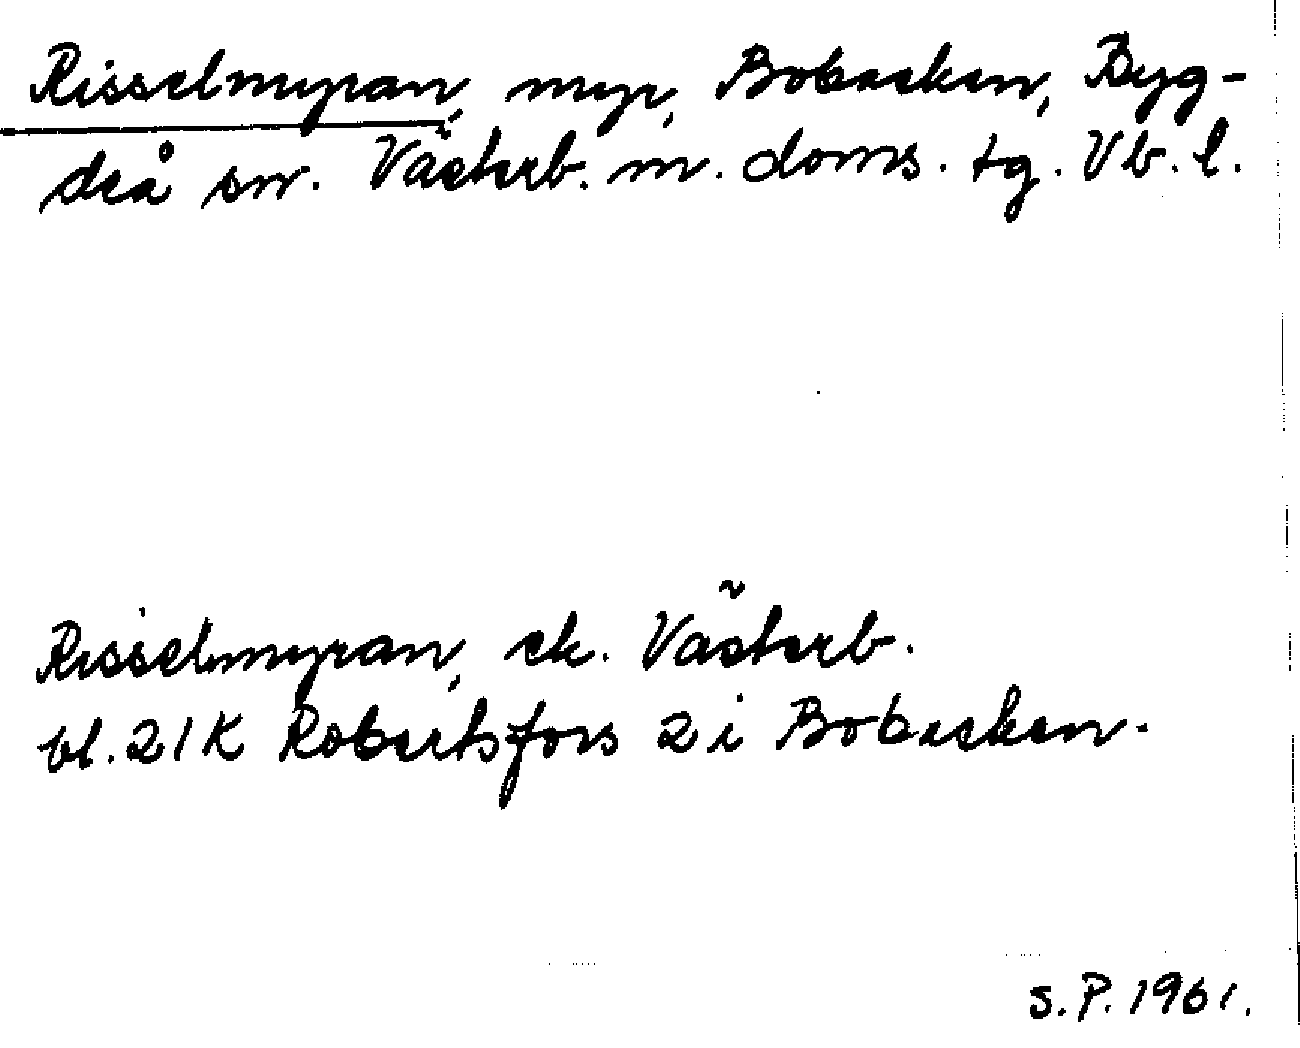 Risselmyran, myr, Bobacken, Byg-
deå sn. Västerb. m. doms. tg. Vb. l.
Risselmyran, ek. Västerb.
bl. 21K Robertsfors 2 i Bobacken.
S.P. 1961.